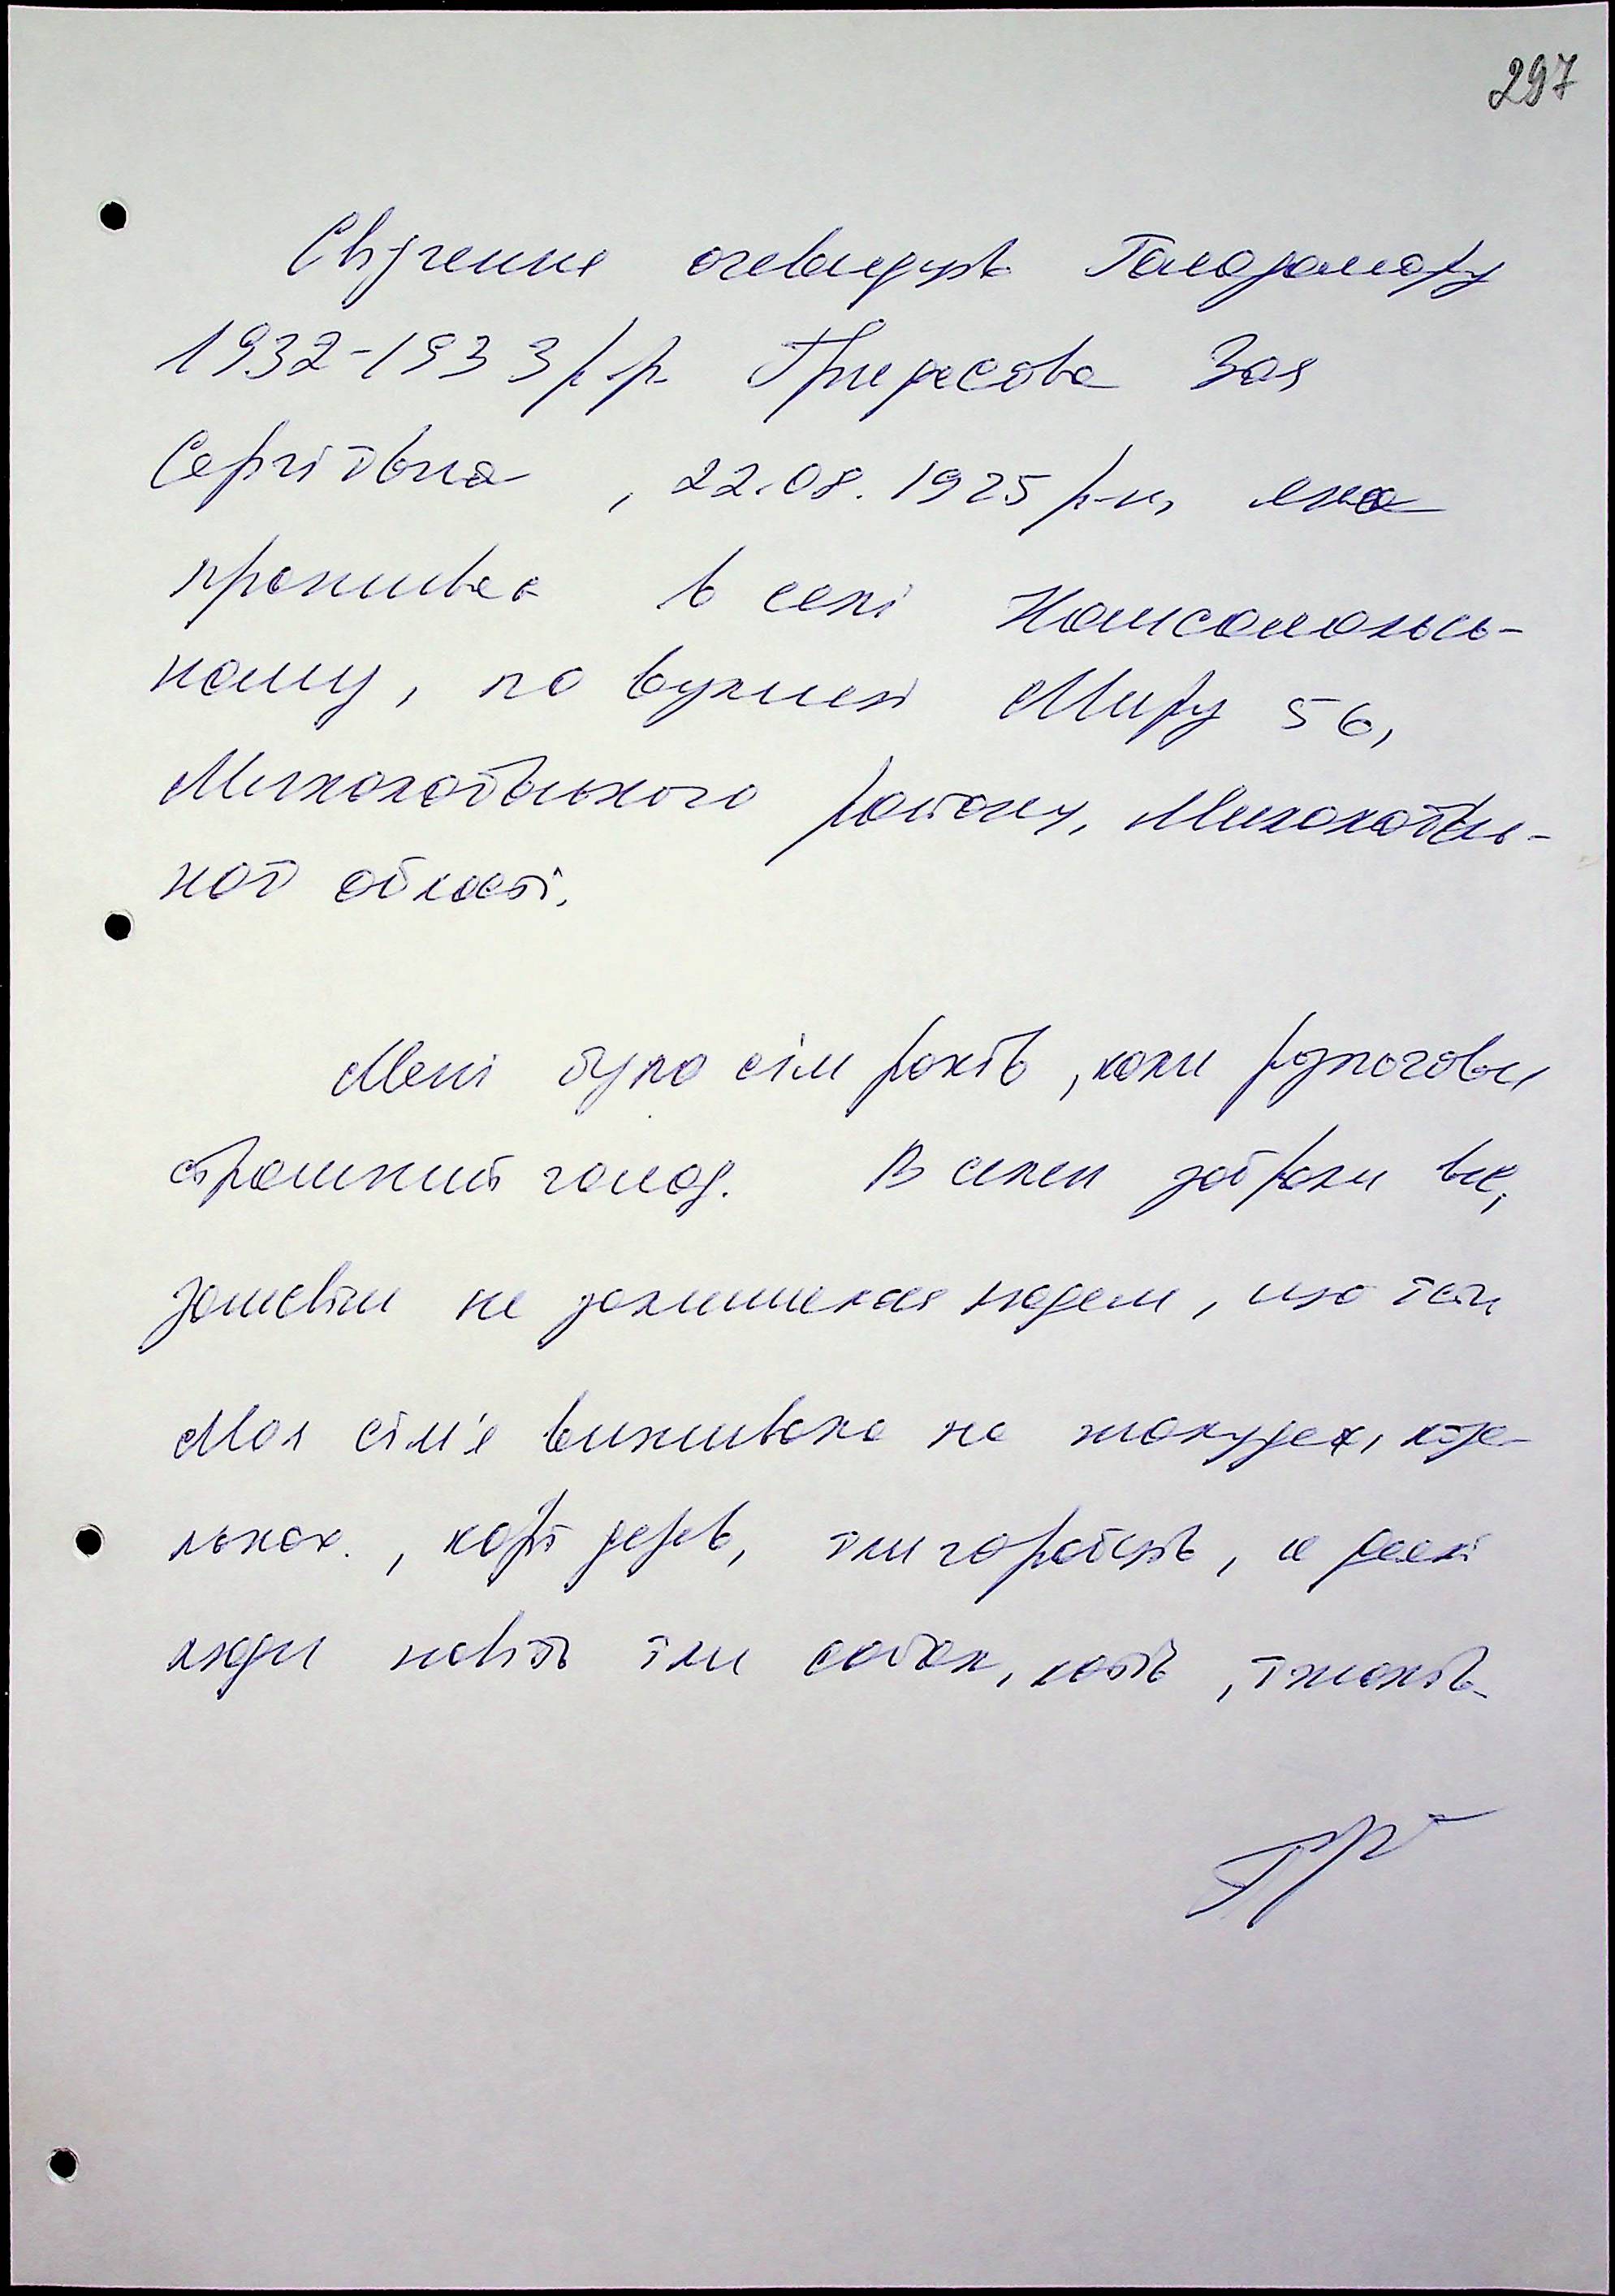 297
Свідчення очевидців Голодомору
1932-1933 р.р. Гридасова Зоя
Сергіївна, 22.08.1925 р.н, яка
проживає в селі Комсомольсь-
кому, по вулиці Миру 56,
Миколаївського району, Миколаївсь-
кої області.
Мені було сім років, коли розпочався
страшний голод. В сім'ї забрали все,
зовсім не залишилося людям, що їсти
Моя сім'я виживала на жолудях,
корі дерев, їли горобців, а деякі
люди навіть їли собак, котів, їжаків.